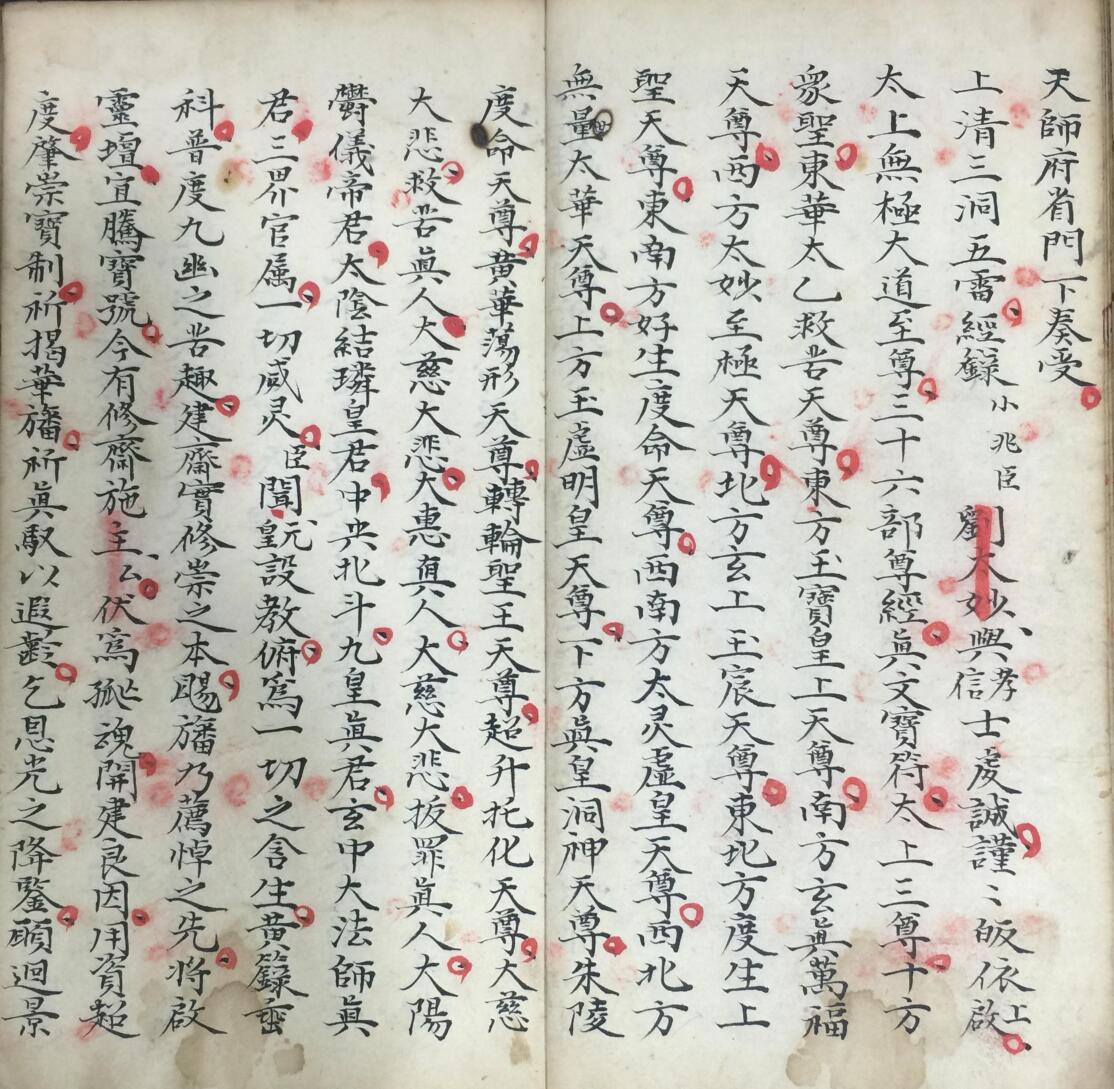 天師府省門下奏受
上清三洞五雷經籙小兆臣劉大妙興孝信士虔誠謹〻皈依上啟
太上無極大道至尊三十六部尊經眞文寶符太上三尊十方
衆聖東華太乙救苦天尊東方玉寶皇上天尊南方玄眞萬福
天尊西方太妙至極天尊北方玄上玉宸天尊東北方度生上
聖天尊東南方好生度命天尊西南方太灵虛皇天尊西北方
無量太華天尊上方玉虛明皇天尊下方眞皇洞神天尊朱陵
度命天尊黃華蕩形天尊轉輪聖王天尊超升托化天尊大慈
大悲救苦眞人大慈大悲大惠眞人大慈大悲拔罪眞人大陽
欝儀帝君太陰結璘皇君中央北斗九皇眞君玄中大法師眞
君三界官属一切威灵臣聞元皇設教俯爲一切之含生黄籙垂
科普度九幽之苦趣建齋實修崇之本賜旛乃薦悼之先將啟
靈壇宜騰寶號今有修齋施主厶伏爲孤魂開建良因用資超
度肇崇寶制祈揭華旛祈眞馭以遐齡乞恩光之降鑒願迴景